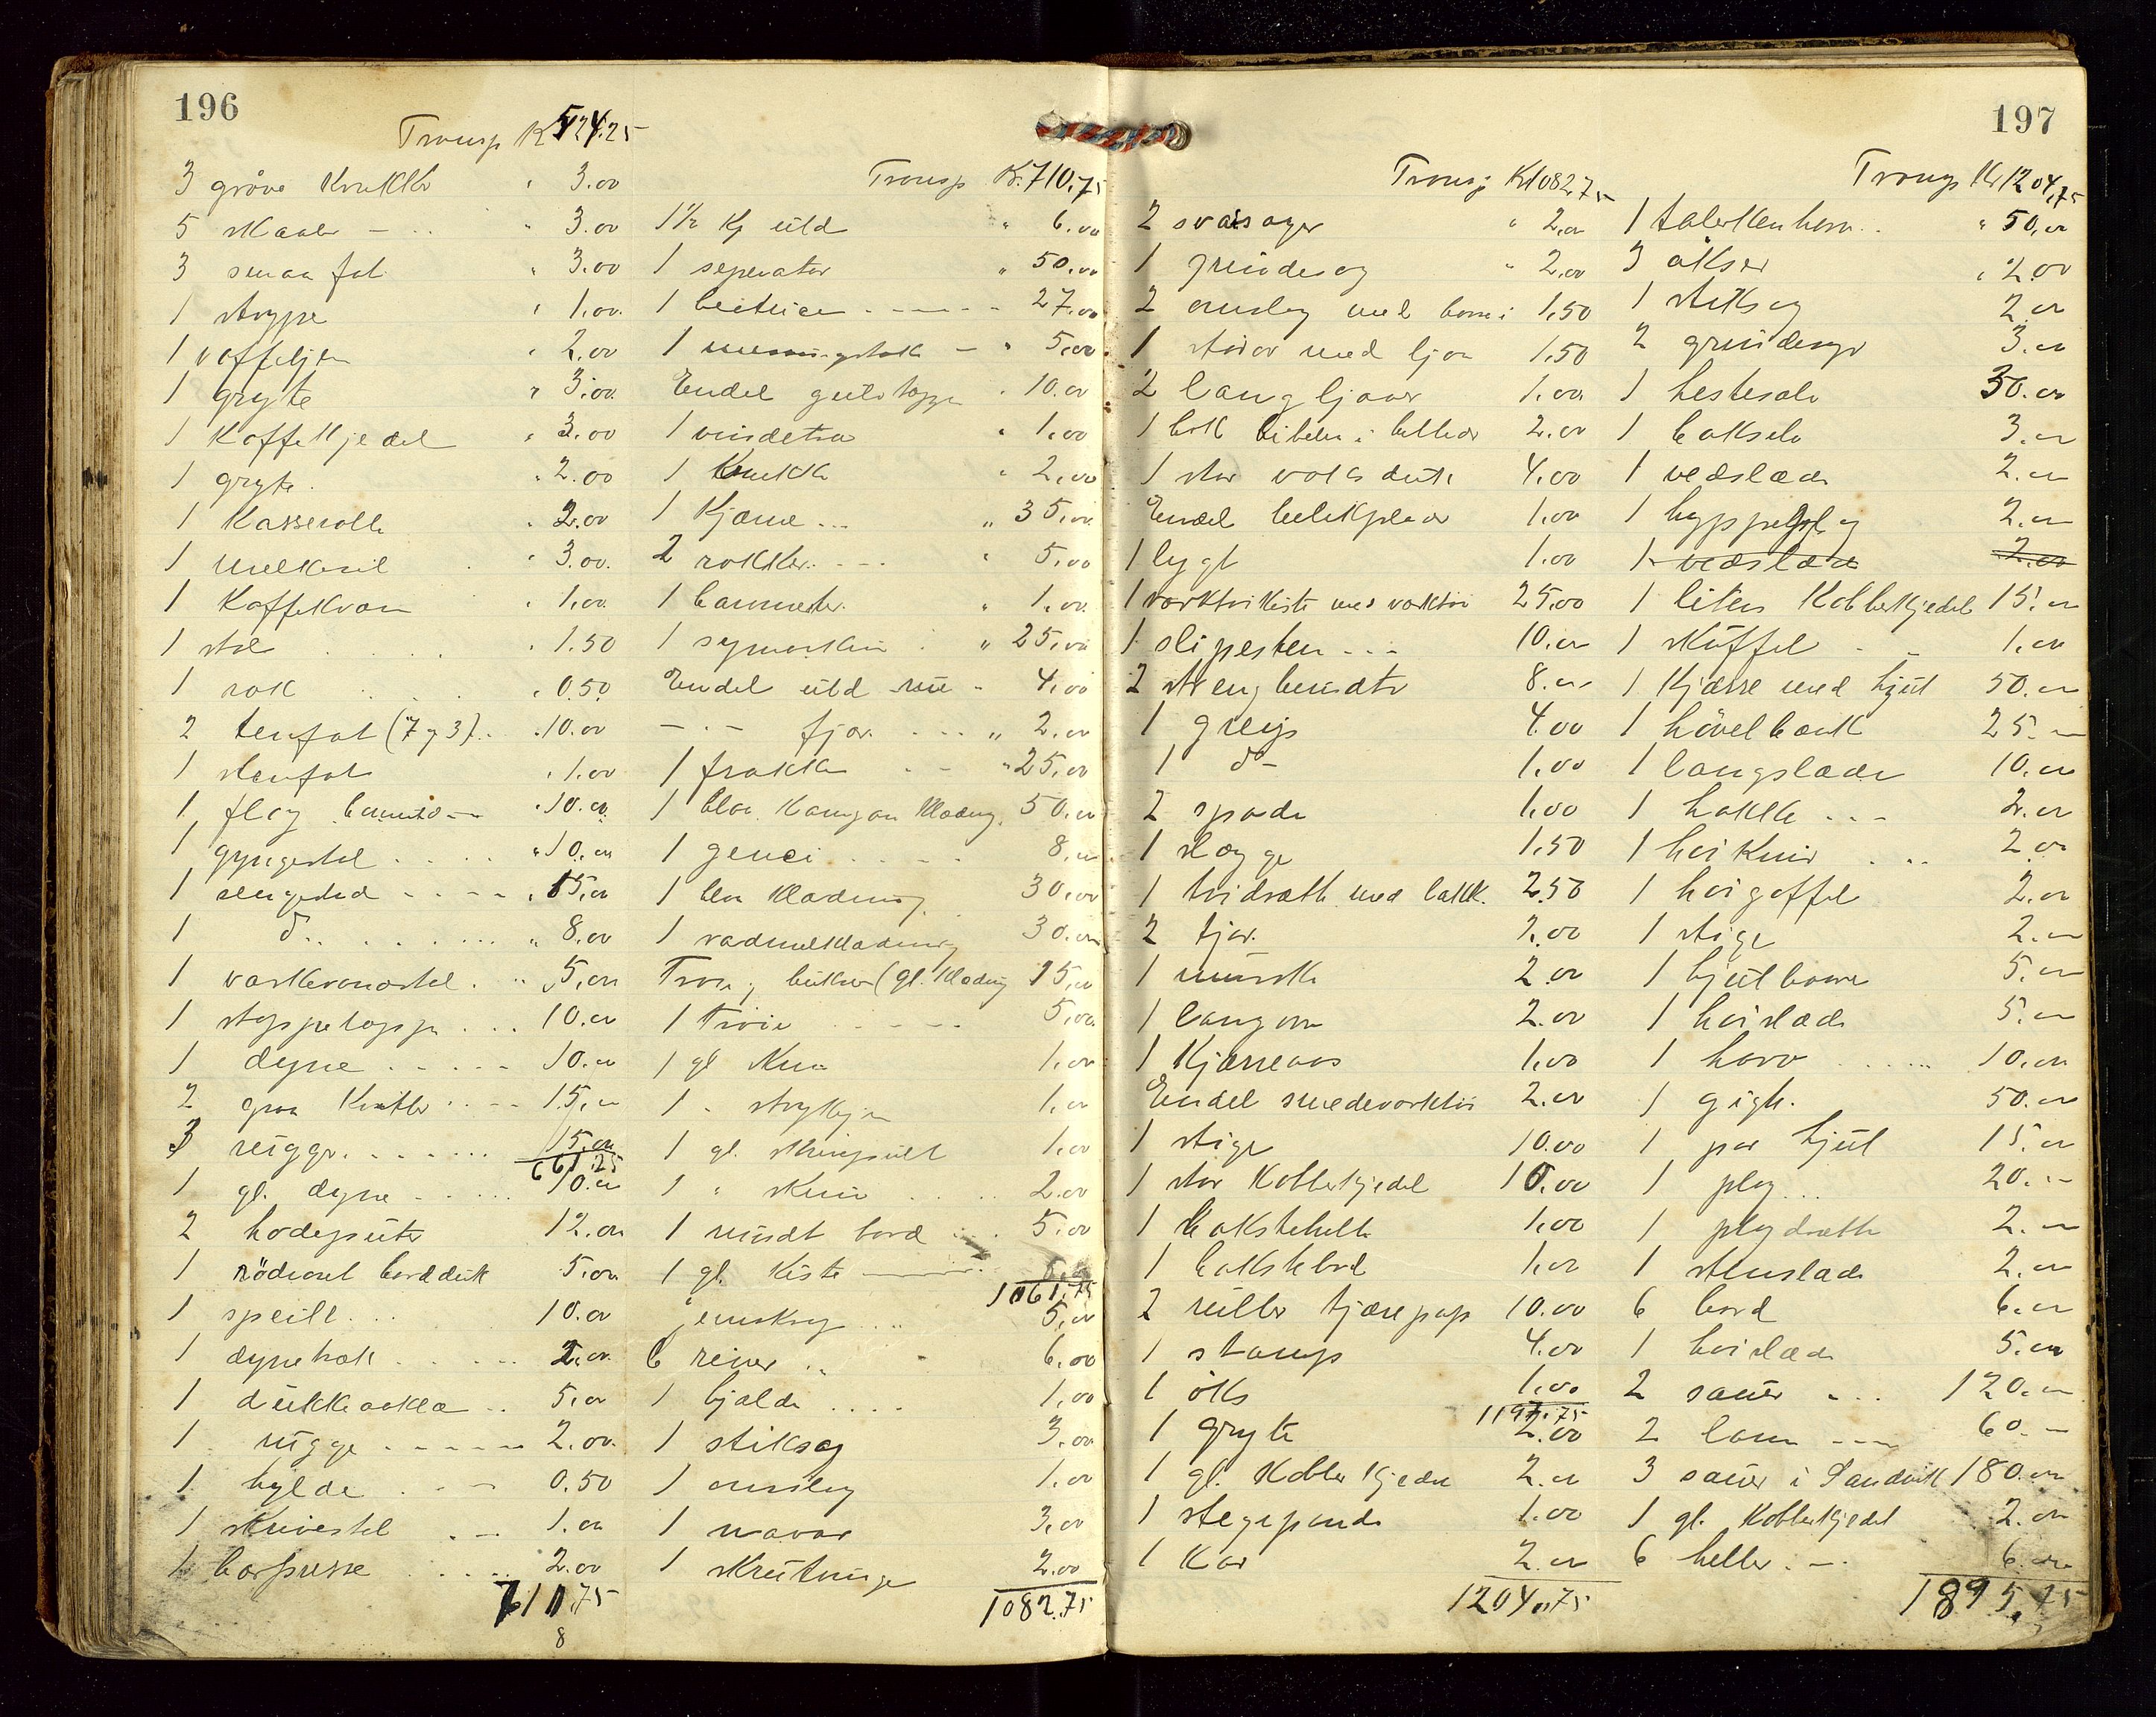 196
Transp Kr 524.25
3 gröve Krukker " 3.00
5 skaaler - " 3.00
3 smaa fat " 3.00
1 " 1.00
1 vaffeljern " 2.00
1 gryte " 3.00
1 Kaffekjedel " 3.00
1 gryte " 2.00
1 Kasserolle " 2.00
1 melkesil " 3.00
1 Kaffekvern " 1.00
1 stol " 1.50
1 rok " 0.50
2 fat (7 og 3) " 10.00
1 stenfat " 1.00
1 flag " 10.00
1 gyngestol " 10.00
1 sengested " 15.00
1 do " 8.00
1 vaskevandstel " 5.00
1 stoppetæppe 10.00
1 dyne 10.00
2 graa Kvitler 15.00
3 rugger 15.00
661.25
1 gl. dyne 10.00
2 hodeputer 12.00
1 rödroset bordduk 5.00
1 speill 10.00
1 dynetræk 2.00
1 dukkeaakla 5.00
1 rugge 2.00
1 hylde 0.50
1 1.00
1 2.00
710.75
8
Transp Kr. 710.75
1½ Kg uld " 6.00
1 seperator " 50.00
1 27.00
1 - " 5.00
Endel gulvtæpper " 10.00
1 vindetræ " 1.00
1 Krukke " 2.00
1 Kjærne " 35.00
2 rokker " 5.00
1 " 1.00
1 symaskin " 25.00
Endel uld 4.00
- " - fjær " 2.00
1 frakke " 25.00
1 blaa Kamgarn Klædning 50.00
1 8.00
1 blaa Klædning 30.00
1 vadmelklædning 30.00
Trøie og bukser (gl. Klædning 15.00
1 Trøie 5.00
1 gl 1.00
1 " strykejern 1.00
1 gl. 1.00
1 " skrin 2.00
1 rundt bord 5.00
1 gl. Kiste
1061.75
5.00
6 river 6.00
1 bjælde 1.00
1 stiksag 3.00
1 omslag 1.00
1 navar 3.00
1 Skrutvinge 2.00
1082.75
197
Transp Kr 1082,75
2 svaisager " 2.00
1 grindesag " 2.00
2 omslag med borr i 1.50
1 med ljaa 1.50
2 langljaaer 1.00
1 bok bibelen i billeder 2.00
1 stor voksduk 4.00
Endel 1.00
1 lygt 1.00
1 værktøikiste med værktøi 25.00
1 slipesten 10.00
2 strengbundter 8.00
1 greip 4.00
1 do - 1.00
2 spader 1.00
1 slægge 1.50
1 hvidrætt med 2.50
2 tjor 2.00
1 2.00
1 langorv 2.00
1 Kjærreaas 1.00
Endel smedeværktøi 2.00
1 stige 10.00
1 stor Kobberkjedel 10.00
1 bakstehelle 1.00
1 bakstebord 1.00
2 ruller tjærepap 10.00
1 stamp 4.00
1 öks 1.00
1197.75
1 gryte 2.00
1 gl. Kobber Kjedel 2.00
1 stegepande 1.00
1 Kar 2.00
1204.75
Transp Kr 1204,75
1 " 50.00
3 økser " 2.00
1 stiksag 2.00
2 grindsager 3.00
1 hestesele 30.00
1 baksele 3.00
1 vedslæde 2.00
1 hyppeplog 2.00
1 vedslæde 2.00
1 liten Kobberkjedel 15.00
1 skuffel 1.00
1 Kjærre med hjul 50.00
1 hövelbænk 25.00
1 langslæde 10.00
1 hakke 2.00
1 høikniv 2.00
1 høigaffel 2.00
1 stige 2.00
1 hjulbaare 5.00
1 høislæde 5.00
1 harv 10.00
1 gigh. 50.00
1 par hjul 15.00
1 plog 20.00
1 plogdrætte 2.00
1 stenslæde 2.00
6 bord 6.00
1 høislæde 5.00
2 sauer 120.00
2 lam 60.00
3 sauer i Sandvik 180.00
1 gl. Kobberkjedel 2.00
6 heller 6.00
1895.75